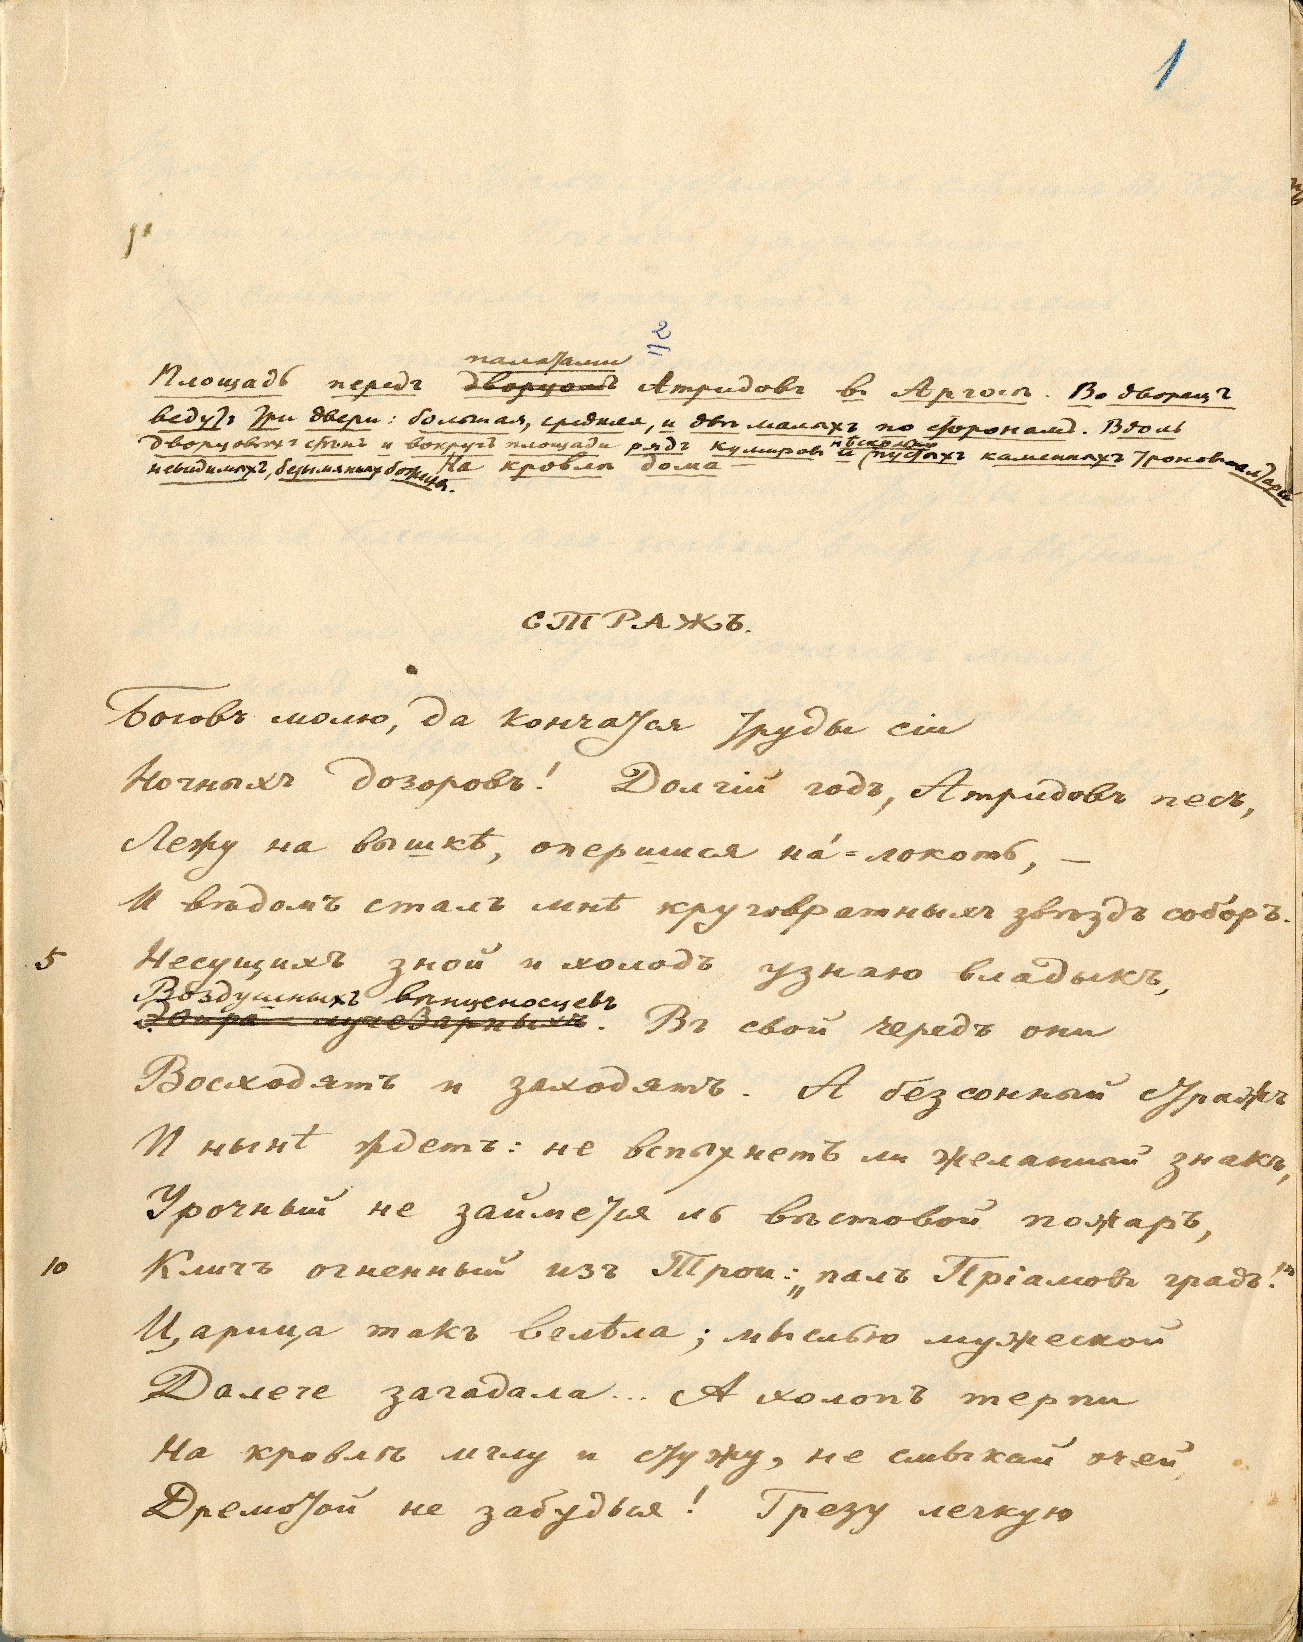 1
2
палатами
Площадь передъ дворцомъ Атридовъ въ Аргосѣ. Во дворецъ
ведутъ три двери: большая, средняя, и двѣ малыхъ по сторонамъ. Вдоль
дворцовыхъ стѣнъ и вокругъ площади рядъ кумировъ и пустыхъ каменныхъ троновъ–алтарей
нѣсколько
невидимыхъ, безыменныхъ божествъ. На кровлѣ дома
СТРАЖЪ.
Боговъ молю, да кончатся труды сіи
Ночныхъ дозоровъ! Долгій годъ, Атридовъ песъ,
Лежу на вышкѣ, опершися на́-локоть, —
И вѣдомъ сталъ мнѣ круговратныхъ звѣздъ соборъ.
5 Несущихъ зной и холодъ узнаю владыкъ,
Воздушныхъ вѣнценосцевъ
Эѳира лучезарныхъ. Въ свой чередъ они
Восходятъ и заходятъ. А безсонный стражъ
И нынѣ ждетъ: не вспыхнетъ ли желанный знакъ,
Урочный не займется ль вѣстовой пожаръ,
10 Кличъ огненный изъ Трои: „палъ Пріамовъ градъ!"
Царица такъ велѣла; мыслью мужеской
Далече загадала... А холопъ терпи
На кровлѣ мглу и стужу, не смыкай очей,
Дремотой не забудься! Грезу легкую